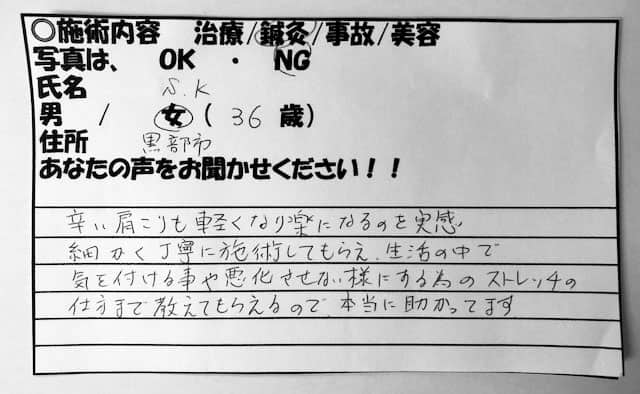 ○施術内容 治療/鍼灸/事故/美容
写真は、 OK ・ NG
氏名 S.K
男 / 女 ( 36 歳)
住所 黒部市
あなたの声をお聞かせください!!
辛い肩こりも軽くなり楽になるのを実感。
細かく丁寧に施術してもらえ、生活の中で
気を付ける事や悪化させない様にする為のストレッチの
仕方まで教えてもらえるので、本当に助かってます